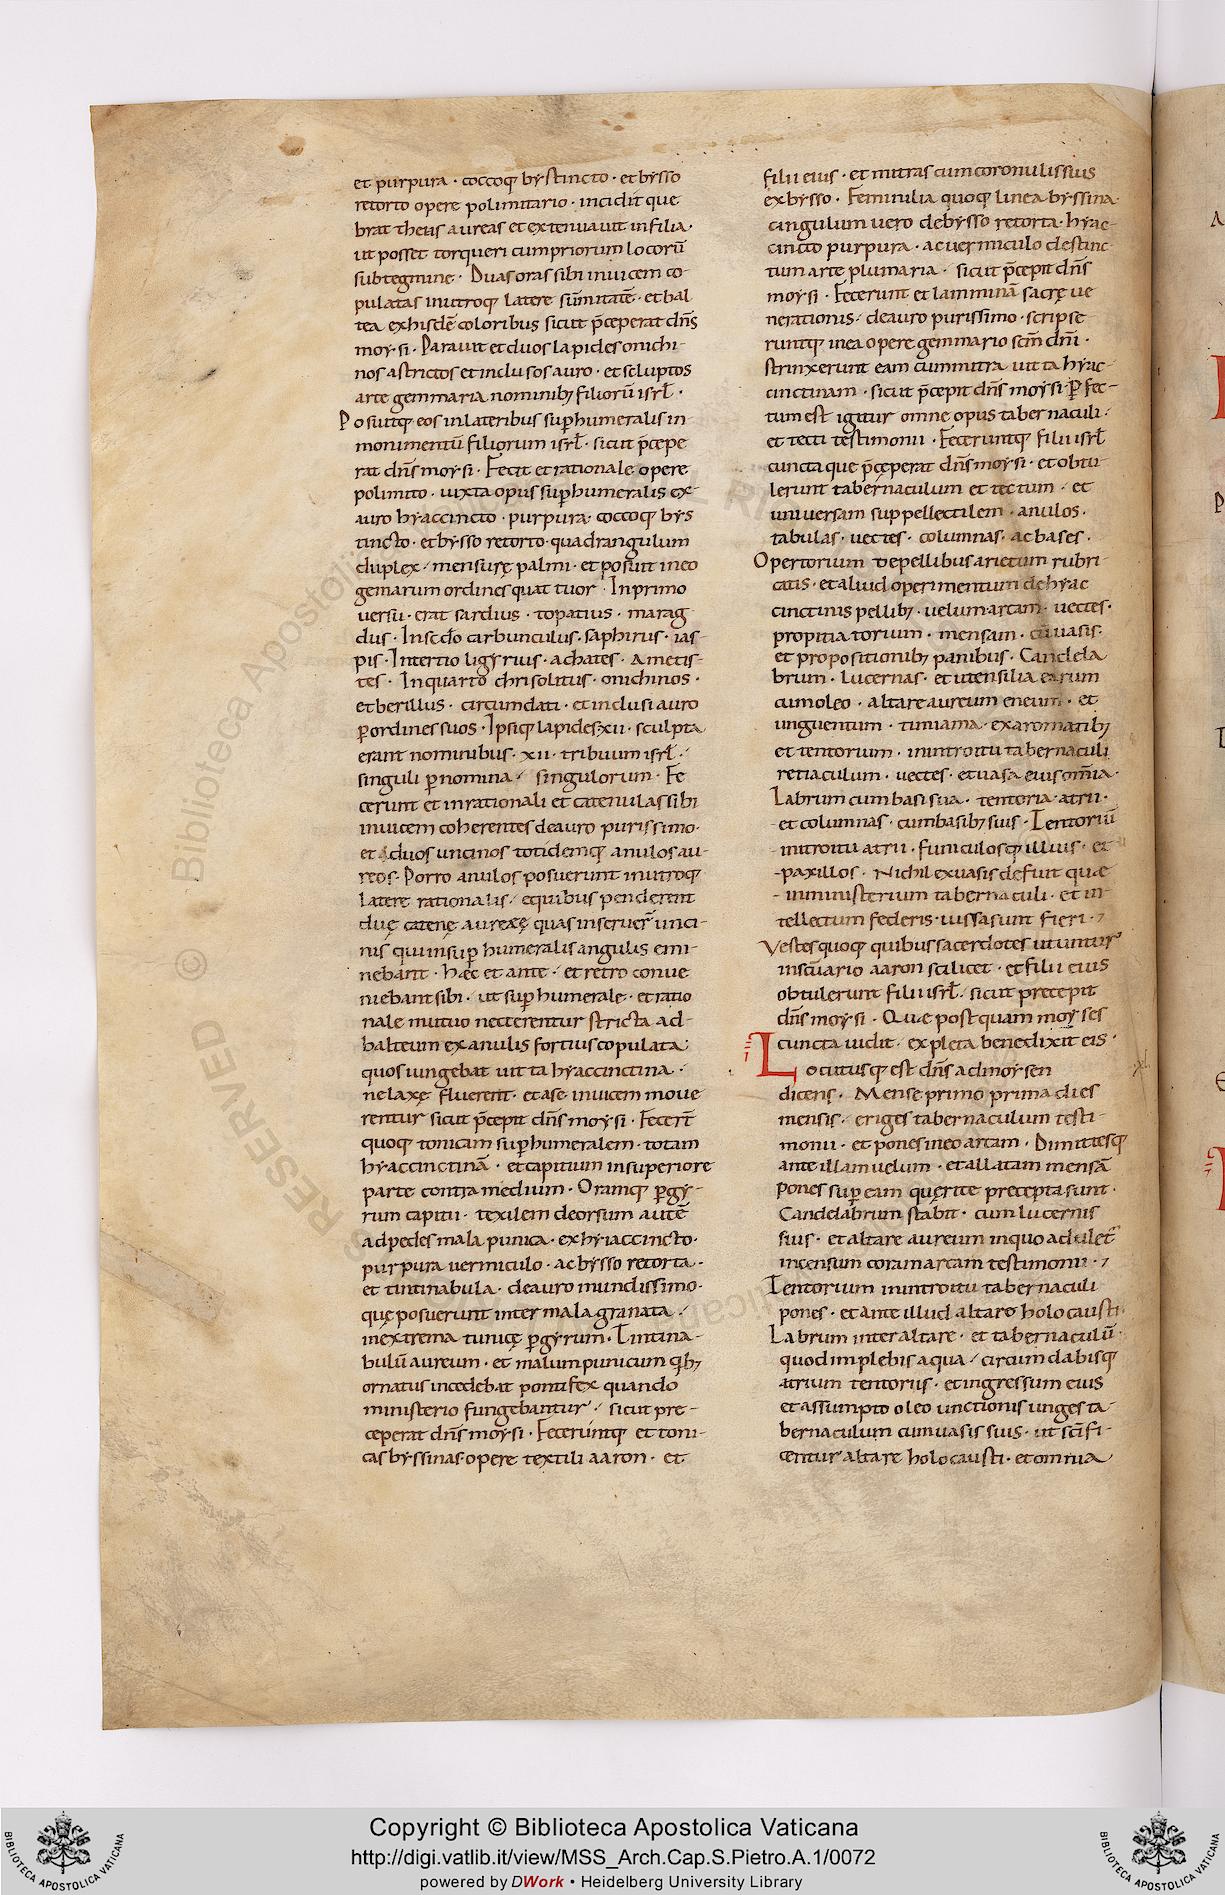 et purpura · coccoq; bystincto · et bysso
retorto opere polimitario · incidit que
brat theas aureas et extenuauit in fila ·
ut posset torqueri cum priorum locorū
subtegmine · Duas oras sibi inuicem co
pulatas in utroq; latere sūmitatē · et bal
tea ex hisdē coloribus sicut p̄ceperat dn̄s
moysi · Parauit et duos lapides onichi
nos astrictos et inclusos auro · et sculptos
arte gemmaria nominib; filiorū isrl̄ ·
Posuitq; eos in lateribus sup̄humeralis in
monimentū filiorum isrl̄ · sicut p̄cepe
rat dn̄s moysi · Fecit et rationale opere
polimito · iuxta opus sup̄humeralis ex
auro hyaccincto · purpura coccoq; bys
tincto · et bysso retorto · quadrangulum
duplex · mensurę palmi · et posuit in eo
gemarum ordines quattuor · In primo
uersu · erat sardius · topatius · marag
dus · In sec̄do carbunculus · saphirus · ias
pis · In tertio ligyrius · achates · ametis
tes · In quarto chrisolitus · onichinos ·
et berillus · circumdati · et inclusi auro
p̄ ordines suos · Ipsiq; lapides · xii · sculpta
erant nominibus · xii · tribuum isrl̄ ·
singuli p̄ nomina · singulorum · Fe
cerunt et in rationali et catenulas sibi
inuicem coherentes de auro purissimo ·
et duos uncinos totidemq; anulos au
reos · Porro anulos posuerunt in utroq;
latere rationalis · e quibus penderent
duę catenę aureę quas inseruer̄ unci
nis qui in sup̄humeralis angulis emi
nebant · hęc et ante · et retro conue
niebant sibi · ut sup̄humerale · et ratio
nale mutuo necterentur stricta ad
balteum ex anulis fortius copulata ·
quos iungebat uitta hyaccinctina ·
ne laxę fluerent · et a se inuicem moue
rentur sicut p̄cepit dn̄s moysi · Fecer̄t
quoq; tonicam sup̄humeralem · totam
hyaccinctinā · et capitum in superiore
parte contra medium · Oramq; p̄ gy
rum capitii · texilem deorsum autē
ad pedes mala punica · ex hyiaccincto ·
purpura uermiculo · ac bysso retorta ·
et tintinabula · de auro mundissimo ·
quę posuerunt inter mala granata ·
in extrema tunicę p̄ gyrum · Tintina
bulū aureum · et malum punicum q̄b;
ornatus incedebat pontifex quando
ministerio fungebantur · sicut pre
ceperat dn̄s moysi · Feceruntq; et toni
cas byssinas opere textili aaron · et
filii eius · et mitras cum coronulis suis
ex bysso · Feminilia quoq; linea byssina ·
cingulum uero de bysso retorta · hyac
cincto purpura · ac uermiculo destinc
tum arte plumaria · sicut p̄cepit dn̄s
moysi · Fecerunt et lamminā sacrę ue
nerationis · de auro purissimo · scripse
runtq; in ea opere gemmario sc̄m dn̄i ·
strinxerunt eam cum mitra uitta hyac
cinctinam · sicut p̄cepit dn̄s moysi · P̄fec
tum est igitur omne opus tabernaculi ·
et tecti testimonii · Feceruntq; filii isrl̄
cuncta que p̄ceperat dn̄s moysi · et obtu
lerunt tabernaculum et tectum · et
uniuersam suppellectilem · anulos ·
tabulas · uectes · columnas · ac bases ·
Opertorium de pellibus arietum rubri
catis · et aliud operimentum de hyac
cinctinis pellib; · uelum · arcam · uectes ·
propitiatorium · mensam · cū uasis ·
et propositionib; panibus · Candela
brum · lucernas · et utensilia earum
cum oleo · altare aureum eneum · et
unguentum · timiama · ex aromatib;
et tentorium · in introitu tabernaculi
retiaculum · uectes · et uasa eius om̄ia ·
Labrum cum basi sua · tentoria atrii ·
et columnas · cum basib; suis · Tentoriū
in introitu atrii · funiculosq; illius · et
paxillos · Nichil ex uasis defuit quę
in ministerium tabernaculi · et in
tellectum federis · iussa sunt fieri ·
Vestes quoq; quibus sacerdotes utuntur
in sc̄uario aaron scilicet · et filii eius
obtulerunt filii isrl̄ · sicut precepit
dn̄s moysi · Quae postquam moyses
cuncta uidit · expleta benedixit eis ·
Locutusq; est dn̄s ad moysen
dicens · Mense primo prima dies
mensis · eriges tabernaculum testi
monii · et pones in eo arcam · Dimittesq;
ante illam uelum · et allatam mensā
pones sup̄ eam quę rite precepta sunt ·
Candelabrum stabit · cum lucernis
suis · et altare aureum in quo adulet̄
incensum coram arcam testimonii ·
Tentorium in introitu tabernaculi
pones · et ante illud altare holocausti ·
Labrum inter altare · et tabernaculū ·
quod implebis aqua · circumdabisq;
atrium tentoriis · et ingressum eius
et assumpto oleo unctionis unges ta
bernaculum cum uasis suis · ut sc̄ifi
centur altare holocausti · et omnia
Copyright © Biblioteca Apostolica Vaticana
http://digi.vatlib.it/view/MSS_Arch.Cap.S.Pietro.A.1/0072
powered by DWork • Heidelberg University Library